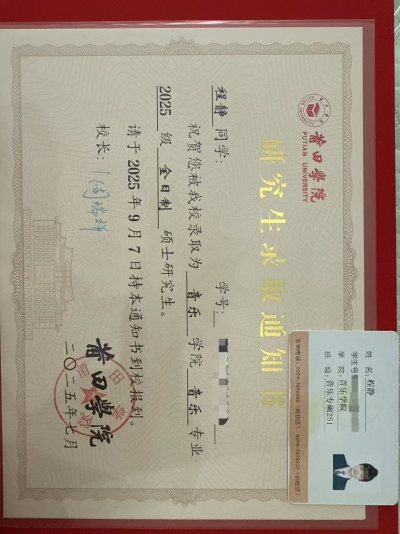 莆田學院
PUTIAN UNIVERSITY
研究生录取通知书
学号:
程静 同学:
祝贺您被我校录取为 音乐 学院 音乐 专业
2025 级 全日制 硕士研究生。
请于 2025 年 9 月 7 日持本通知书到校报到。
校长:
莆田學院
二〇二五年七月
姓 名: 程静
学生号:
学 院: 音乐学院
班 级: 音乐专硕251